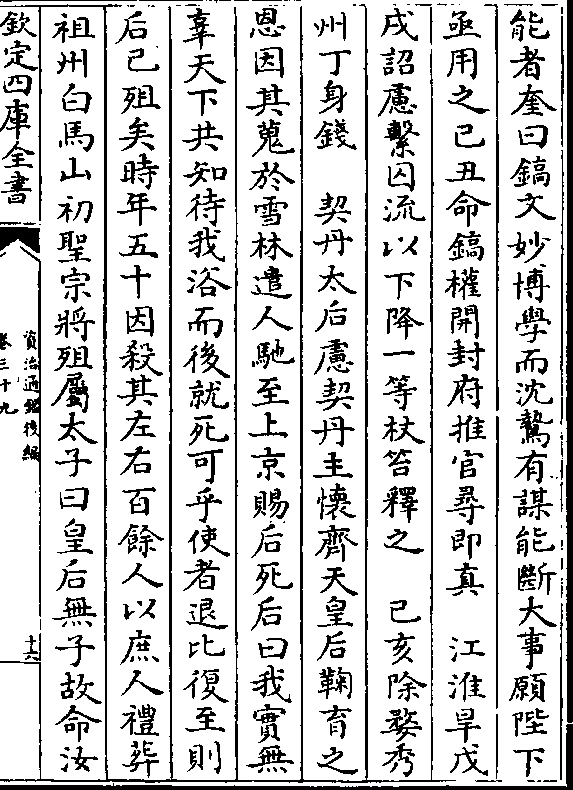 能者奎曰鎬文妙博學而沈鷙有謀能斷大事願陛下
亟用之己丑命鎬權開封府推官尋即真　江淮旱戊
戌詔慮繫囚流以下降一等杖笞釋之　己亥除婺秀
州丁身錢　契丹太后慮契丹主懷齊天皇后鞠育之
恩因其蒐於雪林遣人馳至上京賜后死后曰我實無
辜天下共知待我浴而後就死可乎使者退比復至則
后已殂矣時年五十因殺其左右百餘人以庶人禮葬
祖州白馬山初聖宗將殂屬太子曰皇后無子故命汝
欽定四庫全書
資治通鑑後編
卷三十九
十六